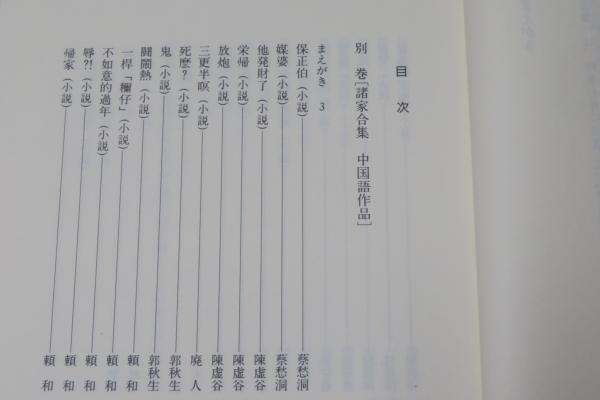 目次
別巻［諸家合集　中国語作品］
まえがき　3
保正伯（小説）――蔡愁洞
媒婆（小説）――蔡愁洞
他発財了（小説）――陳虚谷
栄帰（小説）――陳虚谷
放炮（小説）――陳虚谷
三更半暝（小説）――廃人
死麼？（小説）――郭秋生
鬼（小説）――郭秋生
鬪鬧熱（小説）――頼和
一桿「穪仔」（小説）――頼和
不如意的過年（小説）――頼和
辱?!（小説）――頼和
帰家（小説）――頼和